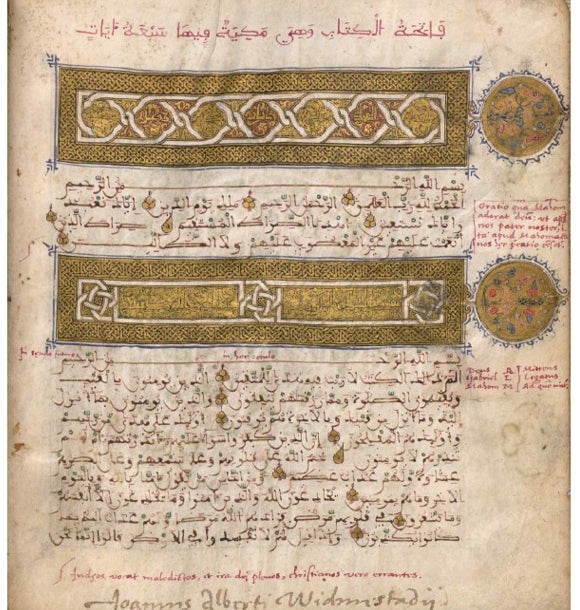 فاتحة الكتاب وهي مكية فيها سبعة ايات
بسم الله الرحمن الرحيم
الحمد لله رب العلمين الرحمن الرحيم ملك يوم الدين اياك نعبد
واياك نستعين اهدنا الصراط المستقيم صراط الذين
انعمت عليهم غير المغضوب عليهم ولا الضالين
Oratio quā Mahom
deum: ut apd
nos pater noster, i
ta apud Mahometa
nos hec oratio est.
بسم الله الرحمن الرحيم
الم ذلك الكتب لا ريب فيه هدى للمتقين الذين يومنون بالغيب
ويقيمون الصلوة ومما رزقنهم ينفقون والذين يومنون بما انزل
اليك وما انزل من قبلك وبالاخرة هم يوقنون اوليك على هدى من ربهم
واوليك هم المفلحون ان الذين كفروا سواء عليهم ءانذرتهم ام لم
تنذرهم لا يومنون ختم الله على قلوبهم وعلى سمعهم وعلى ابصرهم
غشوة ولهم عذاب عظيم ومن الناس من يقول ءامنا بالله وباليوم
الاخر وما هم بمومنين يخدعون الله والذين ءامنوا وما يخدعون الا انفسهم
وما يشعرون في قلوبهم مرض فزادهم الله مرضا ولهم عذاب اليم بما
كانوا يكذبون واذا قيل لهم لا تفسدوا في الارض قالوا انما نحن
Deus A Mittens
Gabriel L Legatus
Mahom M Ad quē
Iudęos vocat maledictos, et ira dei plenos, christianos vere errantes.
Joannis Alberti Widmestadij